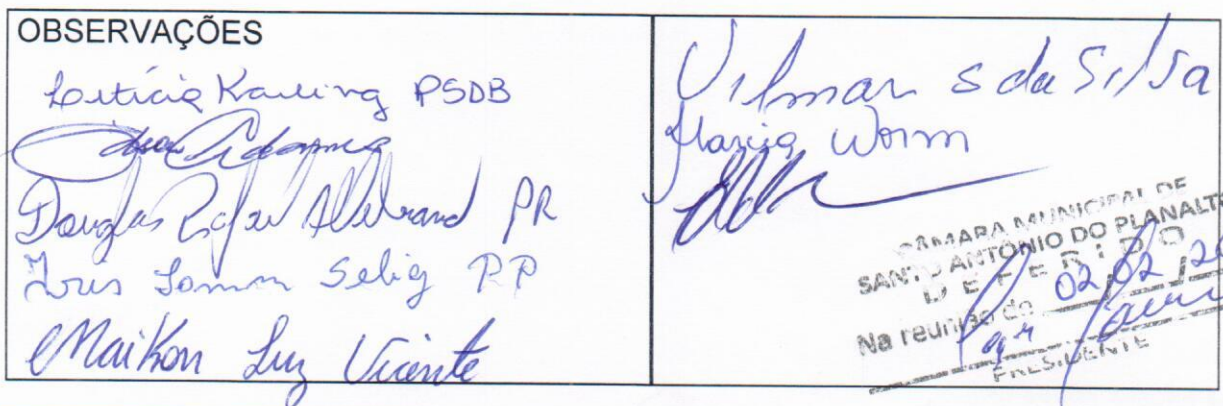 OBSERVAÇÕES
Letícia Kauling PSDB
Adams
Douglas Rafael PR
Iris Selig PP
Maikon Luz Vicente
Vilmar S da Silva
Marcia Worm
CÂMARA MUNICIPAL DE
SANTO ANTÔNIO DO PLANALTO
DEFERIDO
Na reunião do 02/02/20
PRESIDENTE